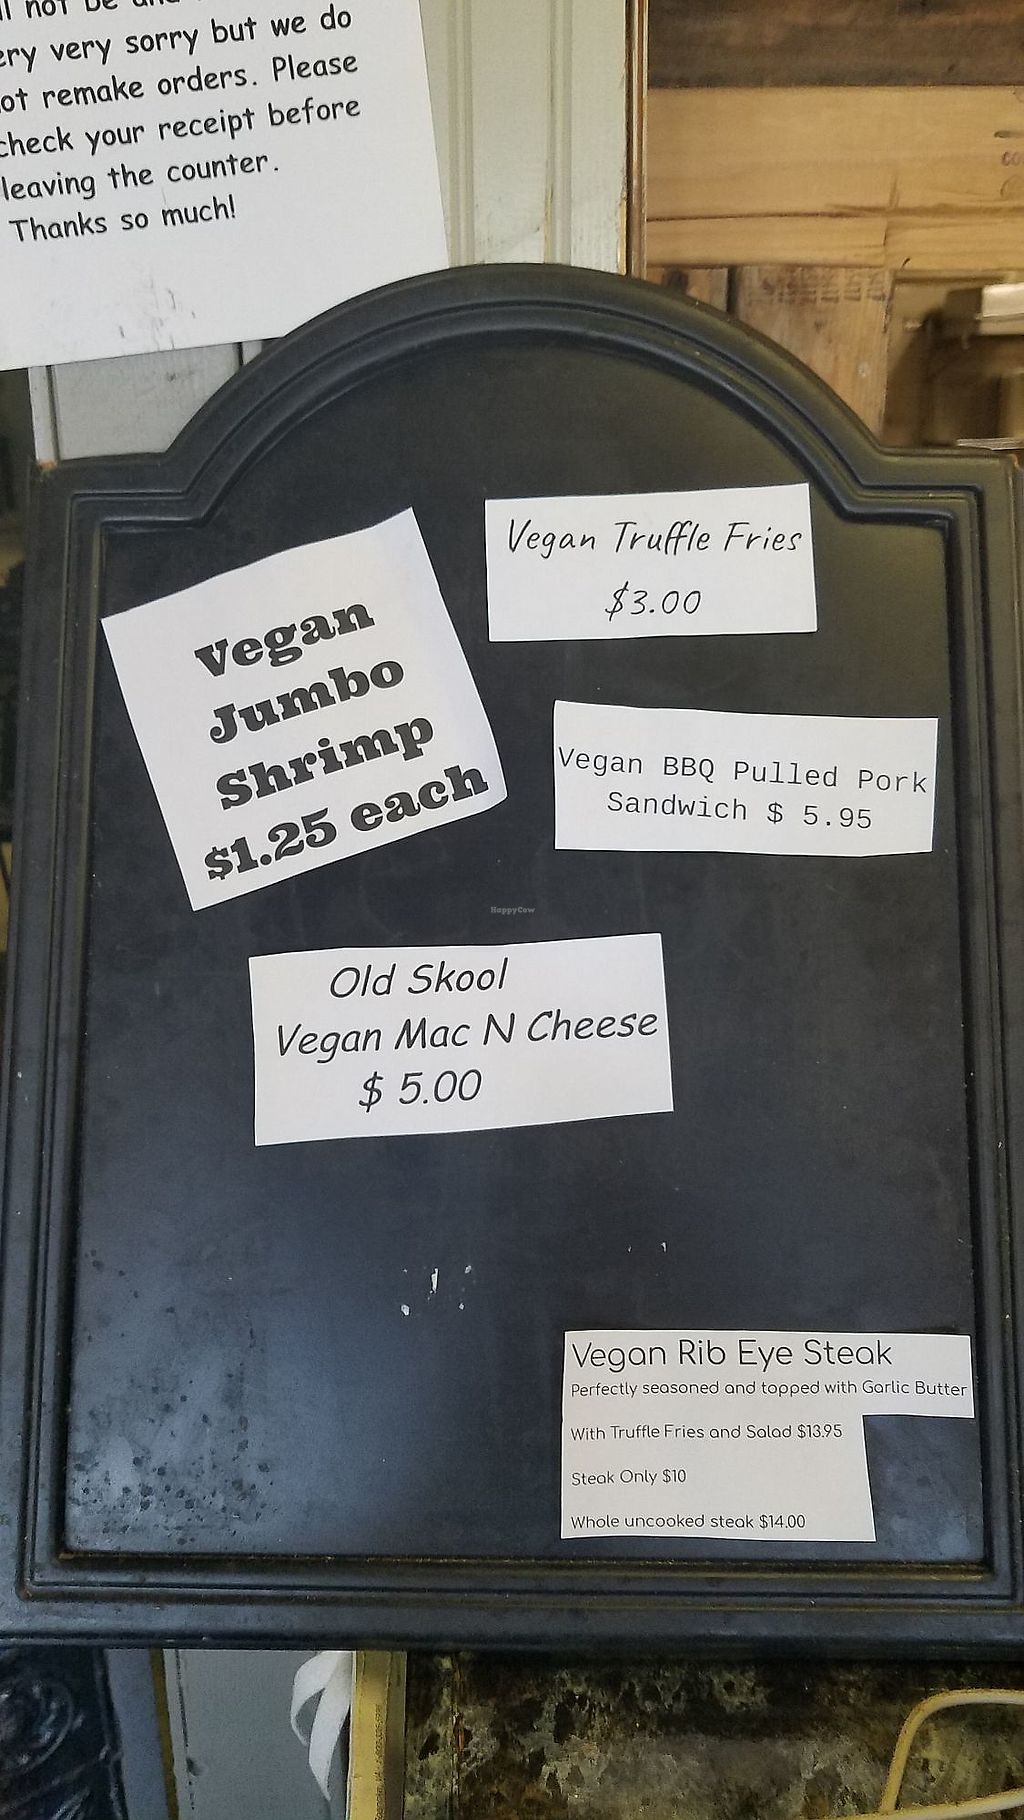 very sorry but we do
remake orders. Please
check your receipt before
leaving the counter.
Thanks so much!
Vegan Truffle Fries
$3.00
Vegan
Jumbo
Shrimp
$1.25 each
Vegan BBQ Pulled Pork
Sandwich $ 5.95
HappyCow
Old Skool
Vegan Mac N Cheese
$ 5.00
Vegan Rib Eye Steak
Perfectly seasoned and topped with Garlic Butter
With Truffle Fries and Salad $13.95
Steak Only $10
Whole uncooked steak $14.00